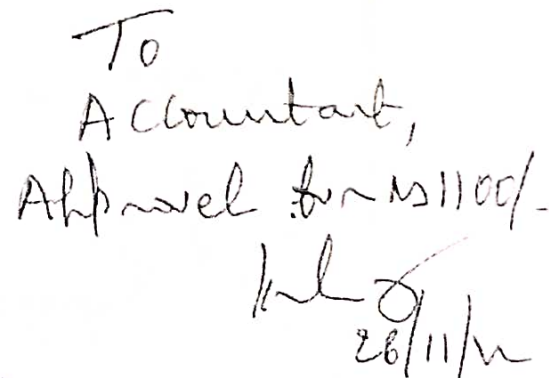 To
Accountant,
Approvel for Rs1100/-
26/11/22